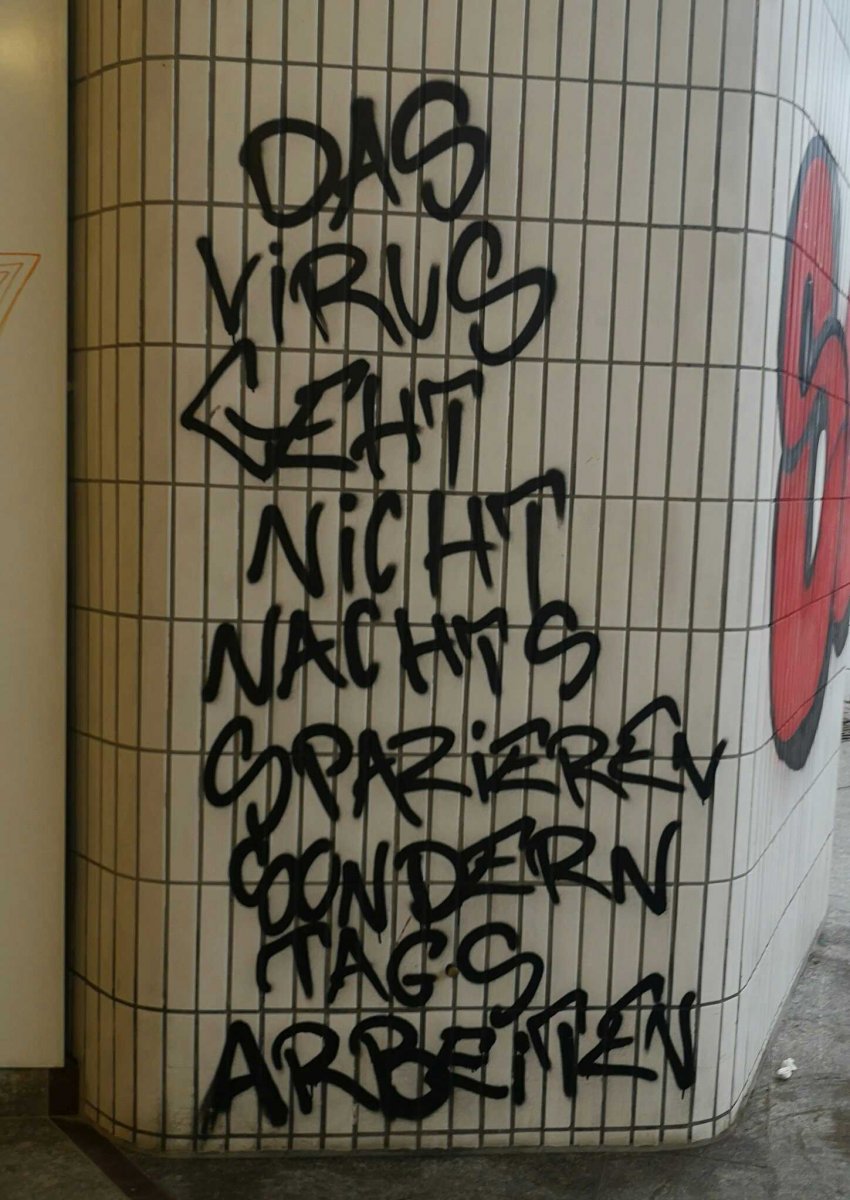 DAS
ViRUS
GEHT
NiCHT
NACHTS
SPAZiEREN
SONDERN
TAGS
ARBEiTEN